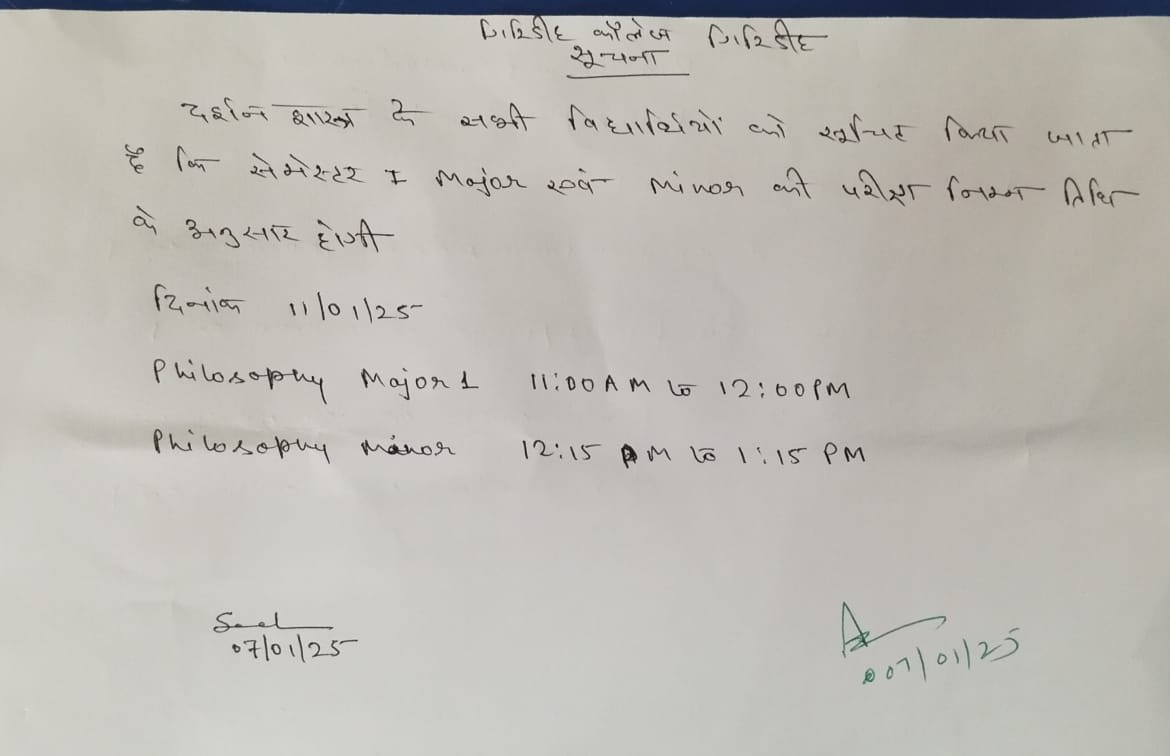 गिरिडीह कॉलेज गिरिडीह
सूचना
दर्शन शास्त्र के सभी विद्यार्थियों को सूचित किया जाता
है कि सेमेस्टर I Major एवं Minor की परीक्षा निम्न तिथि
के अनुसार होगी
दिनांक 11/01/25
Philosophy Major 1 11:00 AM to 12:00 PM
Philosophy Minor 12:15 PM to 1:15 PM
07/01/25
07/01/25